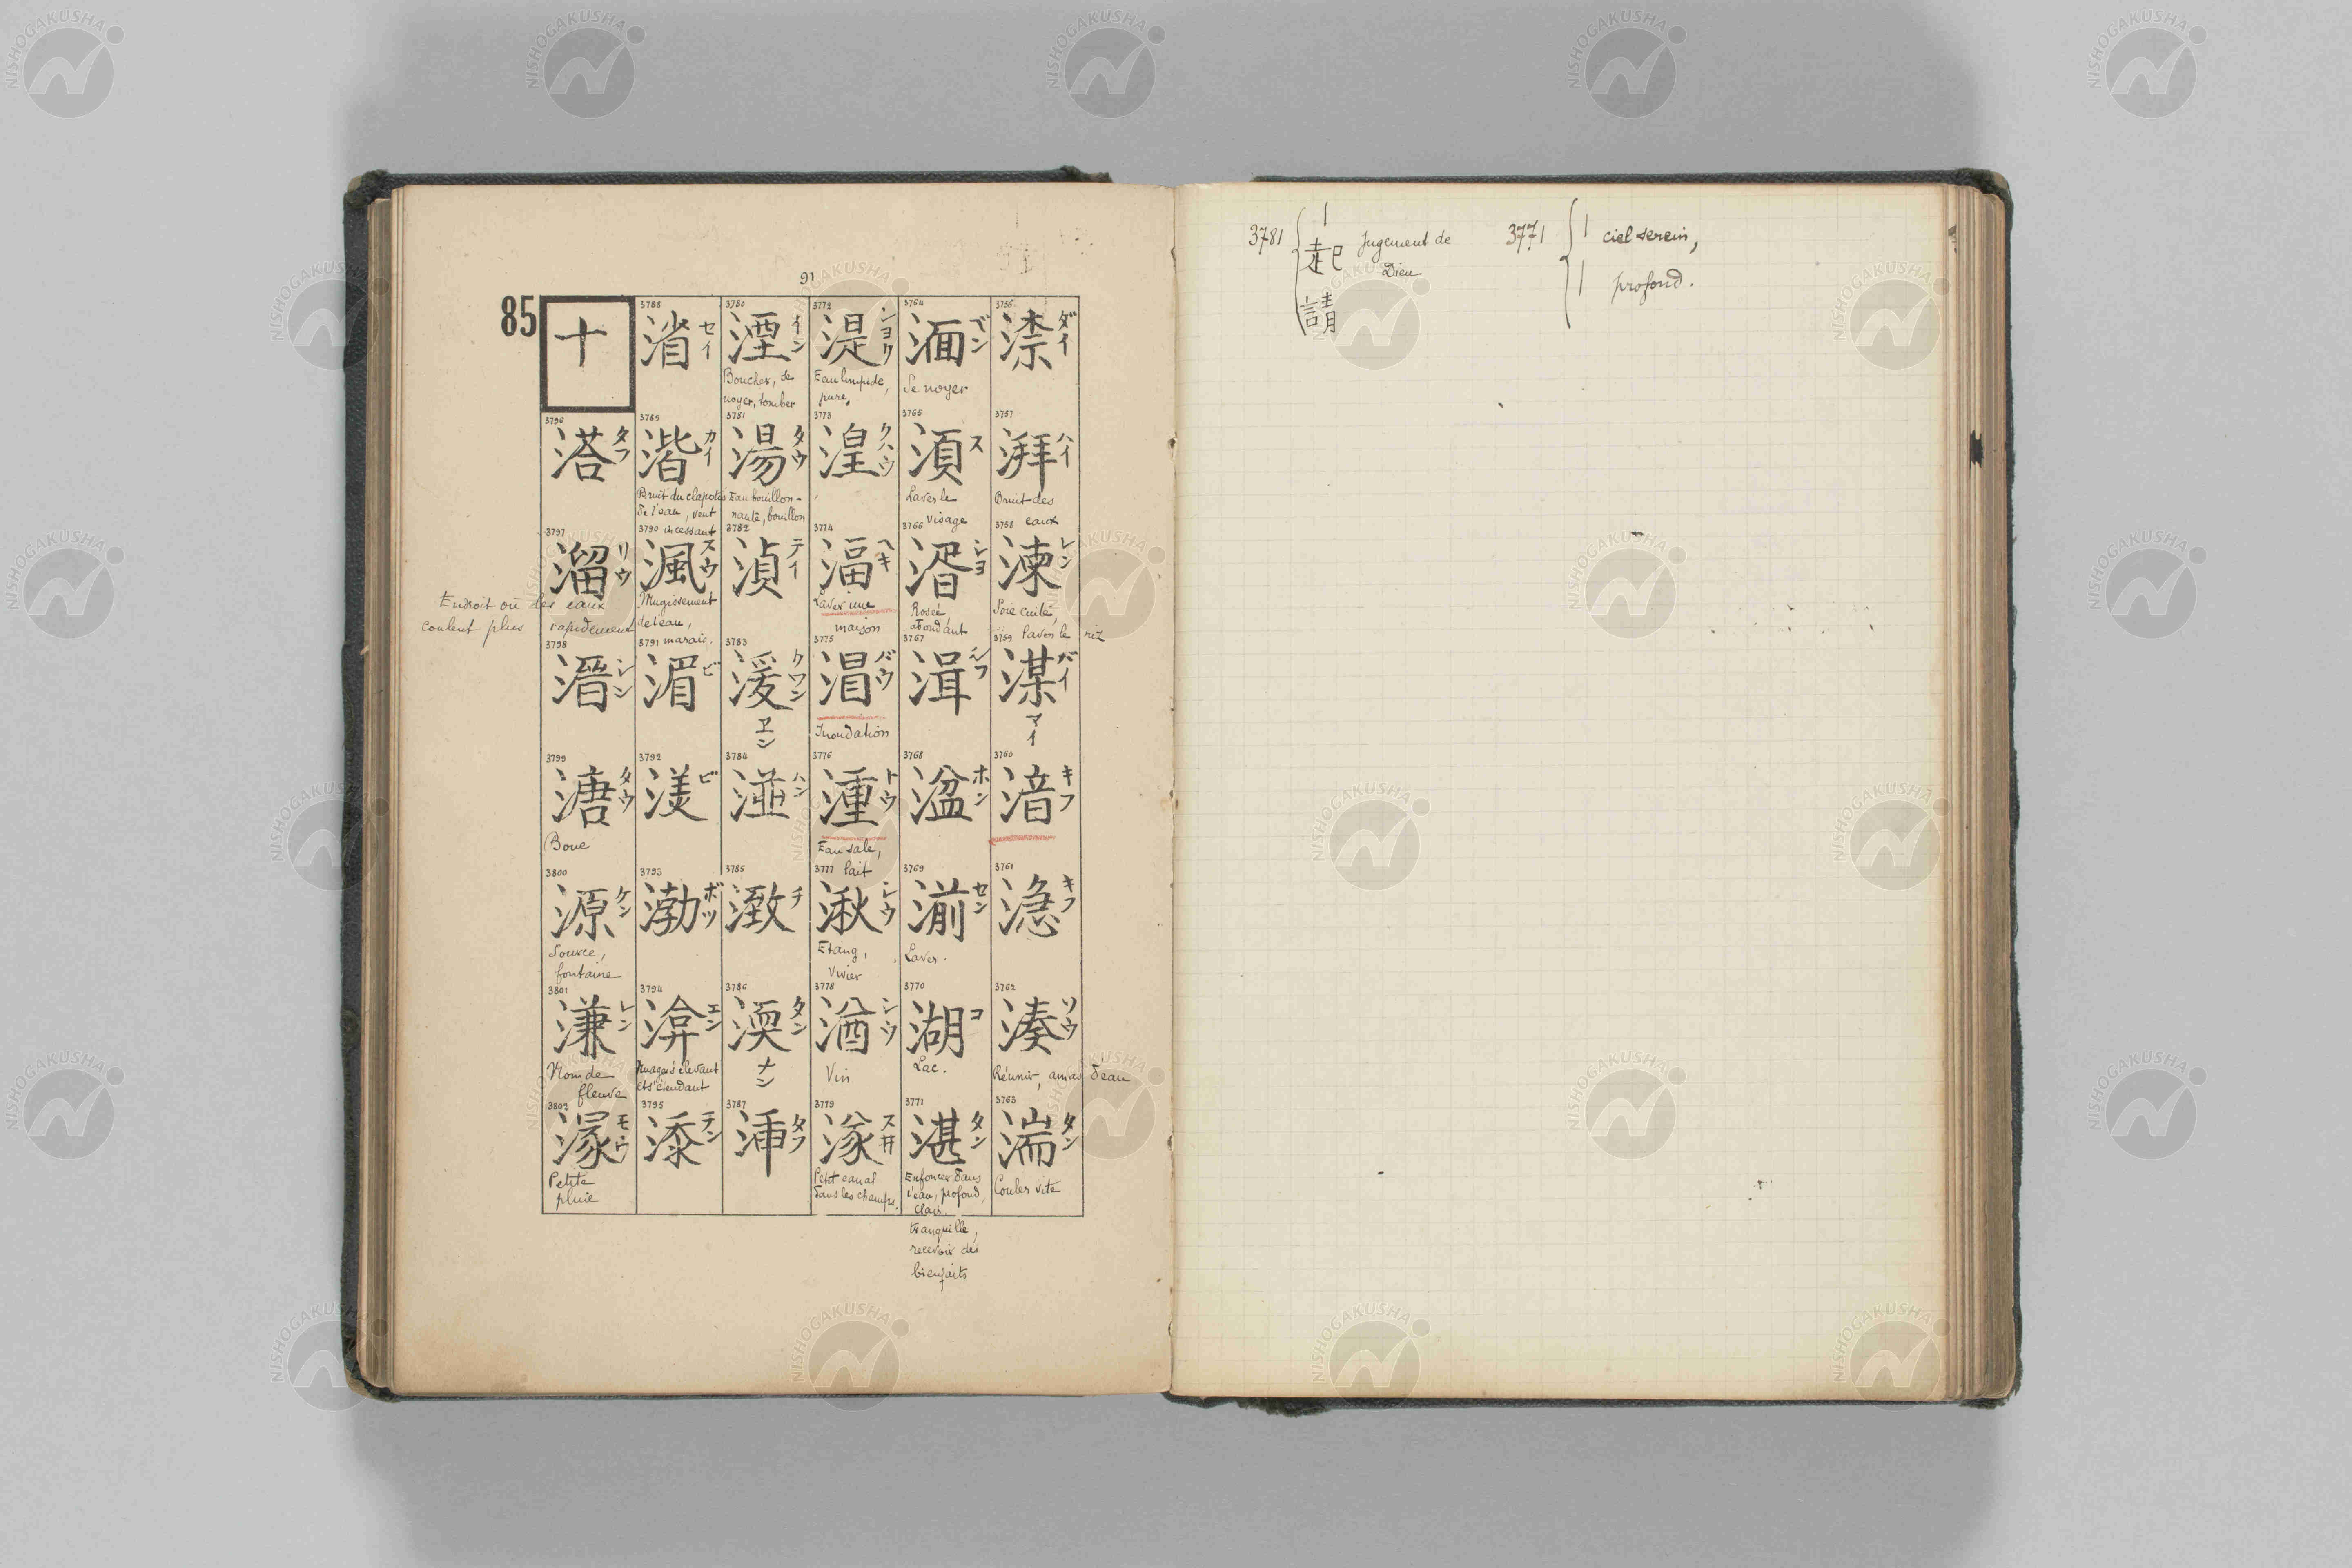 91
85
十
3756
渿 ダイ
3757
湃 ハイ
Bruit des
eaux
3758
湅 レン
Soie cuite,
laver le riz
3759
湈 バイ
マイ
3760
湆 キフ
3761
㴔 キフ
3762
湊 ソウ
Réunir, amas d'eau
3763
湍 タン
Couler vite
3764
湎 ベン
Se noyer
3765
湏 ス
Laver le
visage
3766
湑 シヨ
Rosée
abondant
3767
湒 シフ
3768
湓 ホン
3769
湔 セン
Laver.
3770
湖 コ
Lac.
3771
湛 タン
Enfoncer dans
l'eau, profond,
clair.
tranquille,
recevoir des
bienfaits
3772
湜 シヨク
Eau limpide,
pure,
3773
湟 クハウ
3774
湢 ヘキ
Laver une
maison
3775
湄 バウ
Inondation
3776
湩 トウ
Eau sale,
lait
3777
湫 シウ
Etang,
Vivier
3778
湭 シウ
Vin
3779
㴚 スヰ
Petit canal
dans les champs.
3780
湮 イン
Boucher, se
noyer, tomber
3781
湯 タウ
Eau bouillon-
nante, bouillon
3782
湞 テイ
3783
湲 クワン
ヱン
3784
湴 ハン
3785
緻 チ
3786
渜 タン
ナン
3787
タフ
3788
渻 セイ
3789
湝 カイ
Bruit du clapotis
de l'eau, vent
incessant
3790
渢 スウ
Mugissement
de l'eau,
marais.
3791
湄 ビ
3792
渼 ビ
3793
渤 ボツ
3794
渰 エン
Nuages s'élevant
et s'étendant
3795
テン
3796
溚 タフ
3797
溜 リウ
Endroit où les eaux
coulent plus rapidement
3798
溍 シン
3799
溏 タウ
Boue
3800
源 ケン
Source,
fontaine
3801
溓 レン
Nom de
fleuve
3802
濛 モウ
Petite
pluie
3781
起
請
Jugement de
Dieu
3771
ciel serein,
profond.
NISHOGAKUSHA